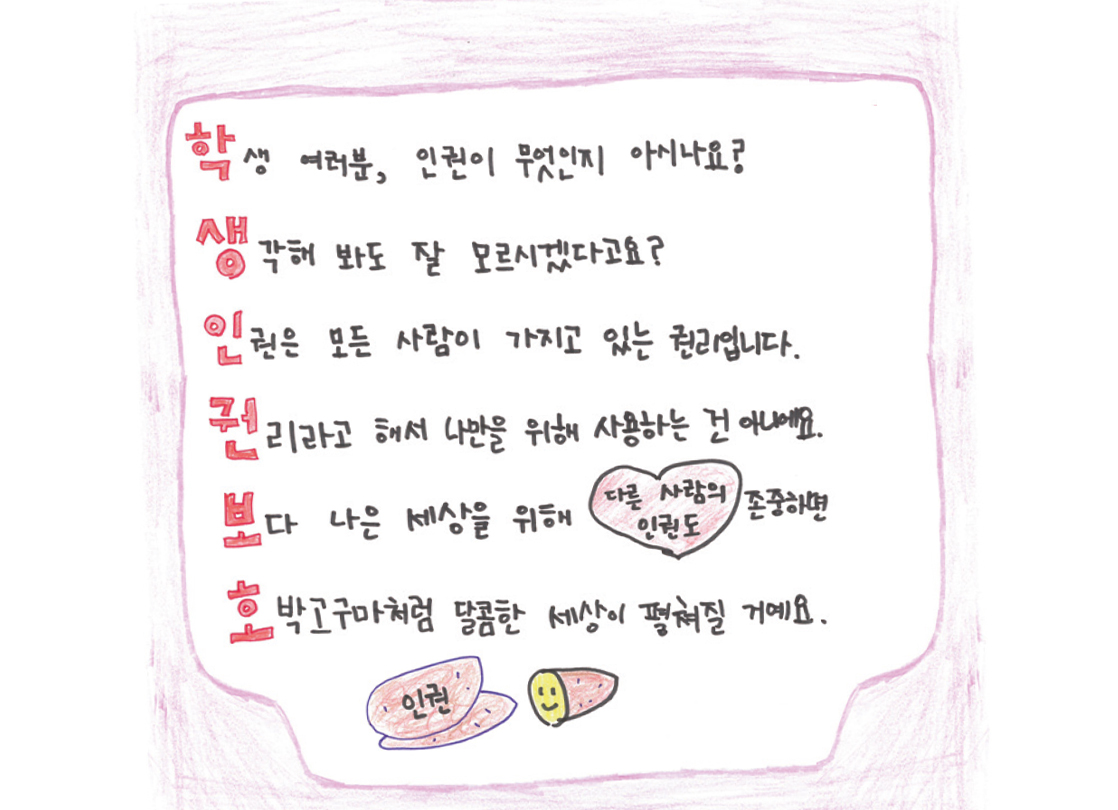 학생 여러분, 인권이 무엇인지 아시나요?
생각해 봐도 잘 모르시겠다고요?
인권은 모든 사람이 가지고 있는 권리입니다.
권리라고 해서 나만을 위해 사용하는 건 아니에요.
보다 나은 세상을 위해 다른 사람의 인권도 존중하면
호박고구마처럼 달콤한 세상이 펼쳐질 거예요.
인권